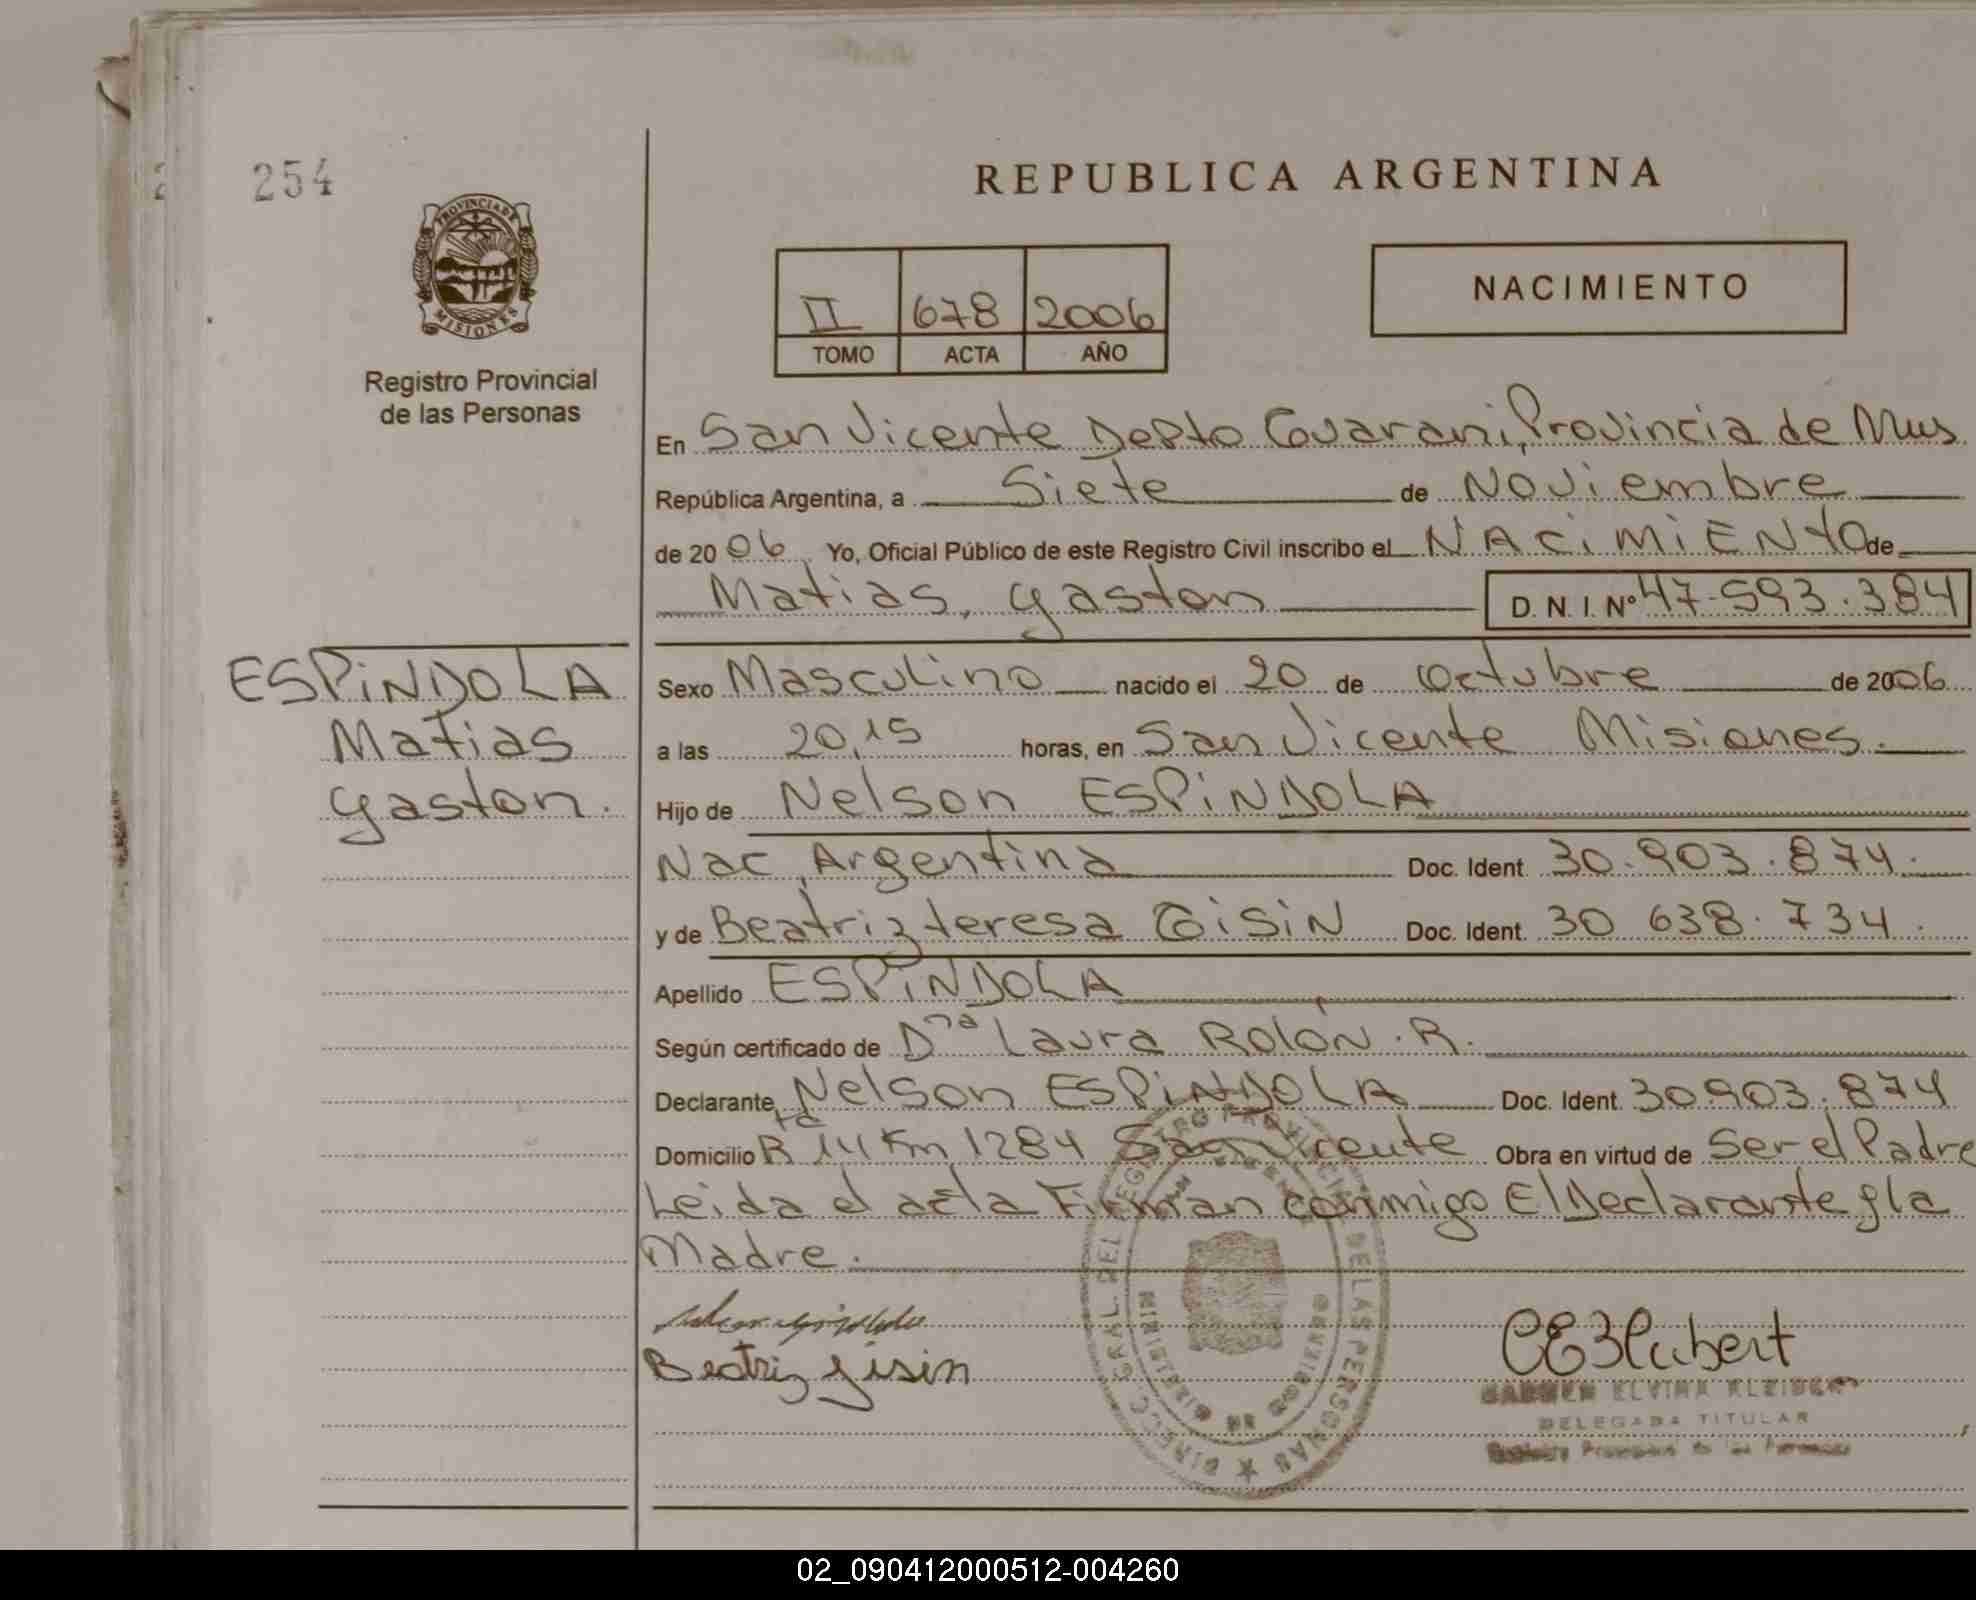 254
REPUBLICA ARGENTINA
PROVINCIA DE
MISIONES
Registro Provincial
de las Personas
II 678 2006
TOMO ACTA AÑO
NACIMIENTO
En San Vicente Depto Guarani, Provincia de Mns
República Argentina, a Siete de Noviembre
de 20 06 Yo, Oficial Público de este Registro Civil inscribo el NACiMiENto de
Matias, gaston D. N. I. Nº 47-593.384
ESPiNDOLA
Matias
gaston.
Sexo Masculino nacido el 20 de octubre de 2006
a las 20,15 horas, en San Vicente Misiones.
Hijo de Nelson ESPiNDOLA
Nac, Argentina Doc. Ident. 30.903.874.
y de Beatriz teresa GiSiN Doc. Ident. 30 638.734.
Apellido ESPiNDOLA
Según certificado de Dra Laura ROLÓN. R.
Declarante Nelson ESPiNDOLA Doc. Ident. 30903.874
Domicilio Rta 14 Km 1284 San Vicente Obra en virtud de Ser el Padre
Leida el acta Firman conmigo El Declarante y la
Madre.
Beatriz gisin
CEB Hubert
CARMEN ELVIRA
DELEGADA TITULAR
Registro Provincial de las Personas
DIRECC. GRAL. DEL REGISTRO PROVINCIAL DE LAS PERSONAS
MINISTERIO DE GOBIERNO
02_090412000512-004260